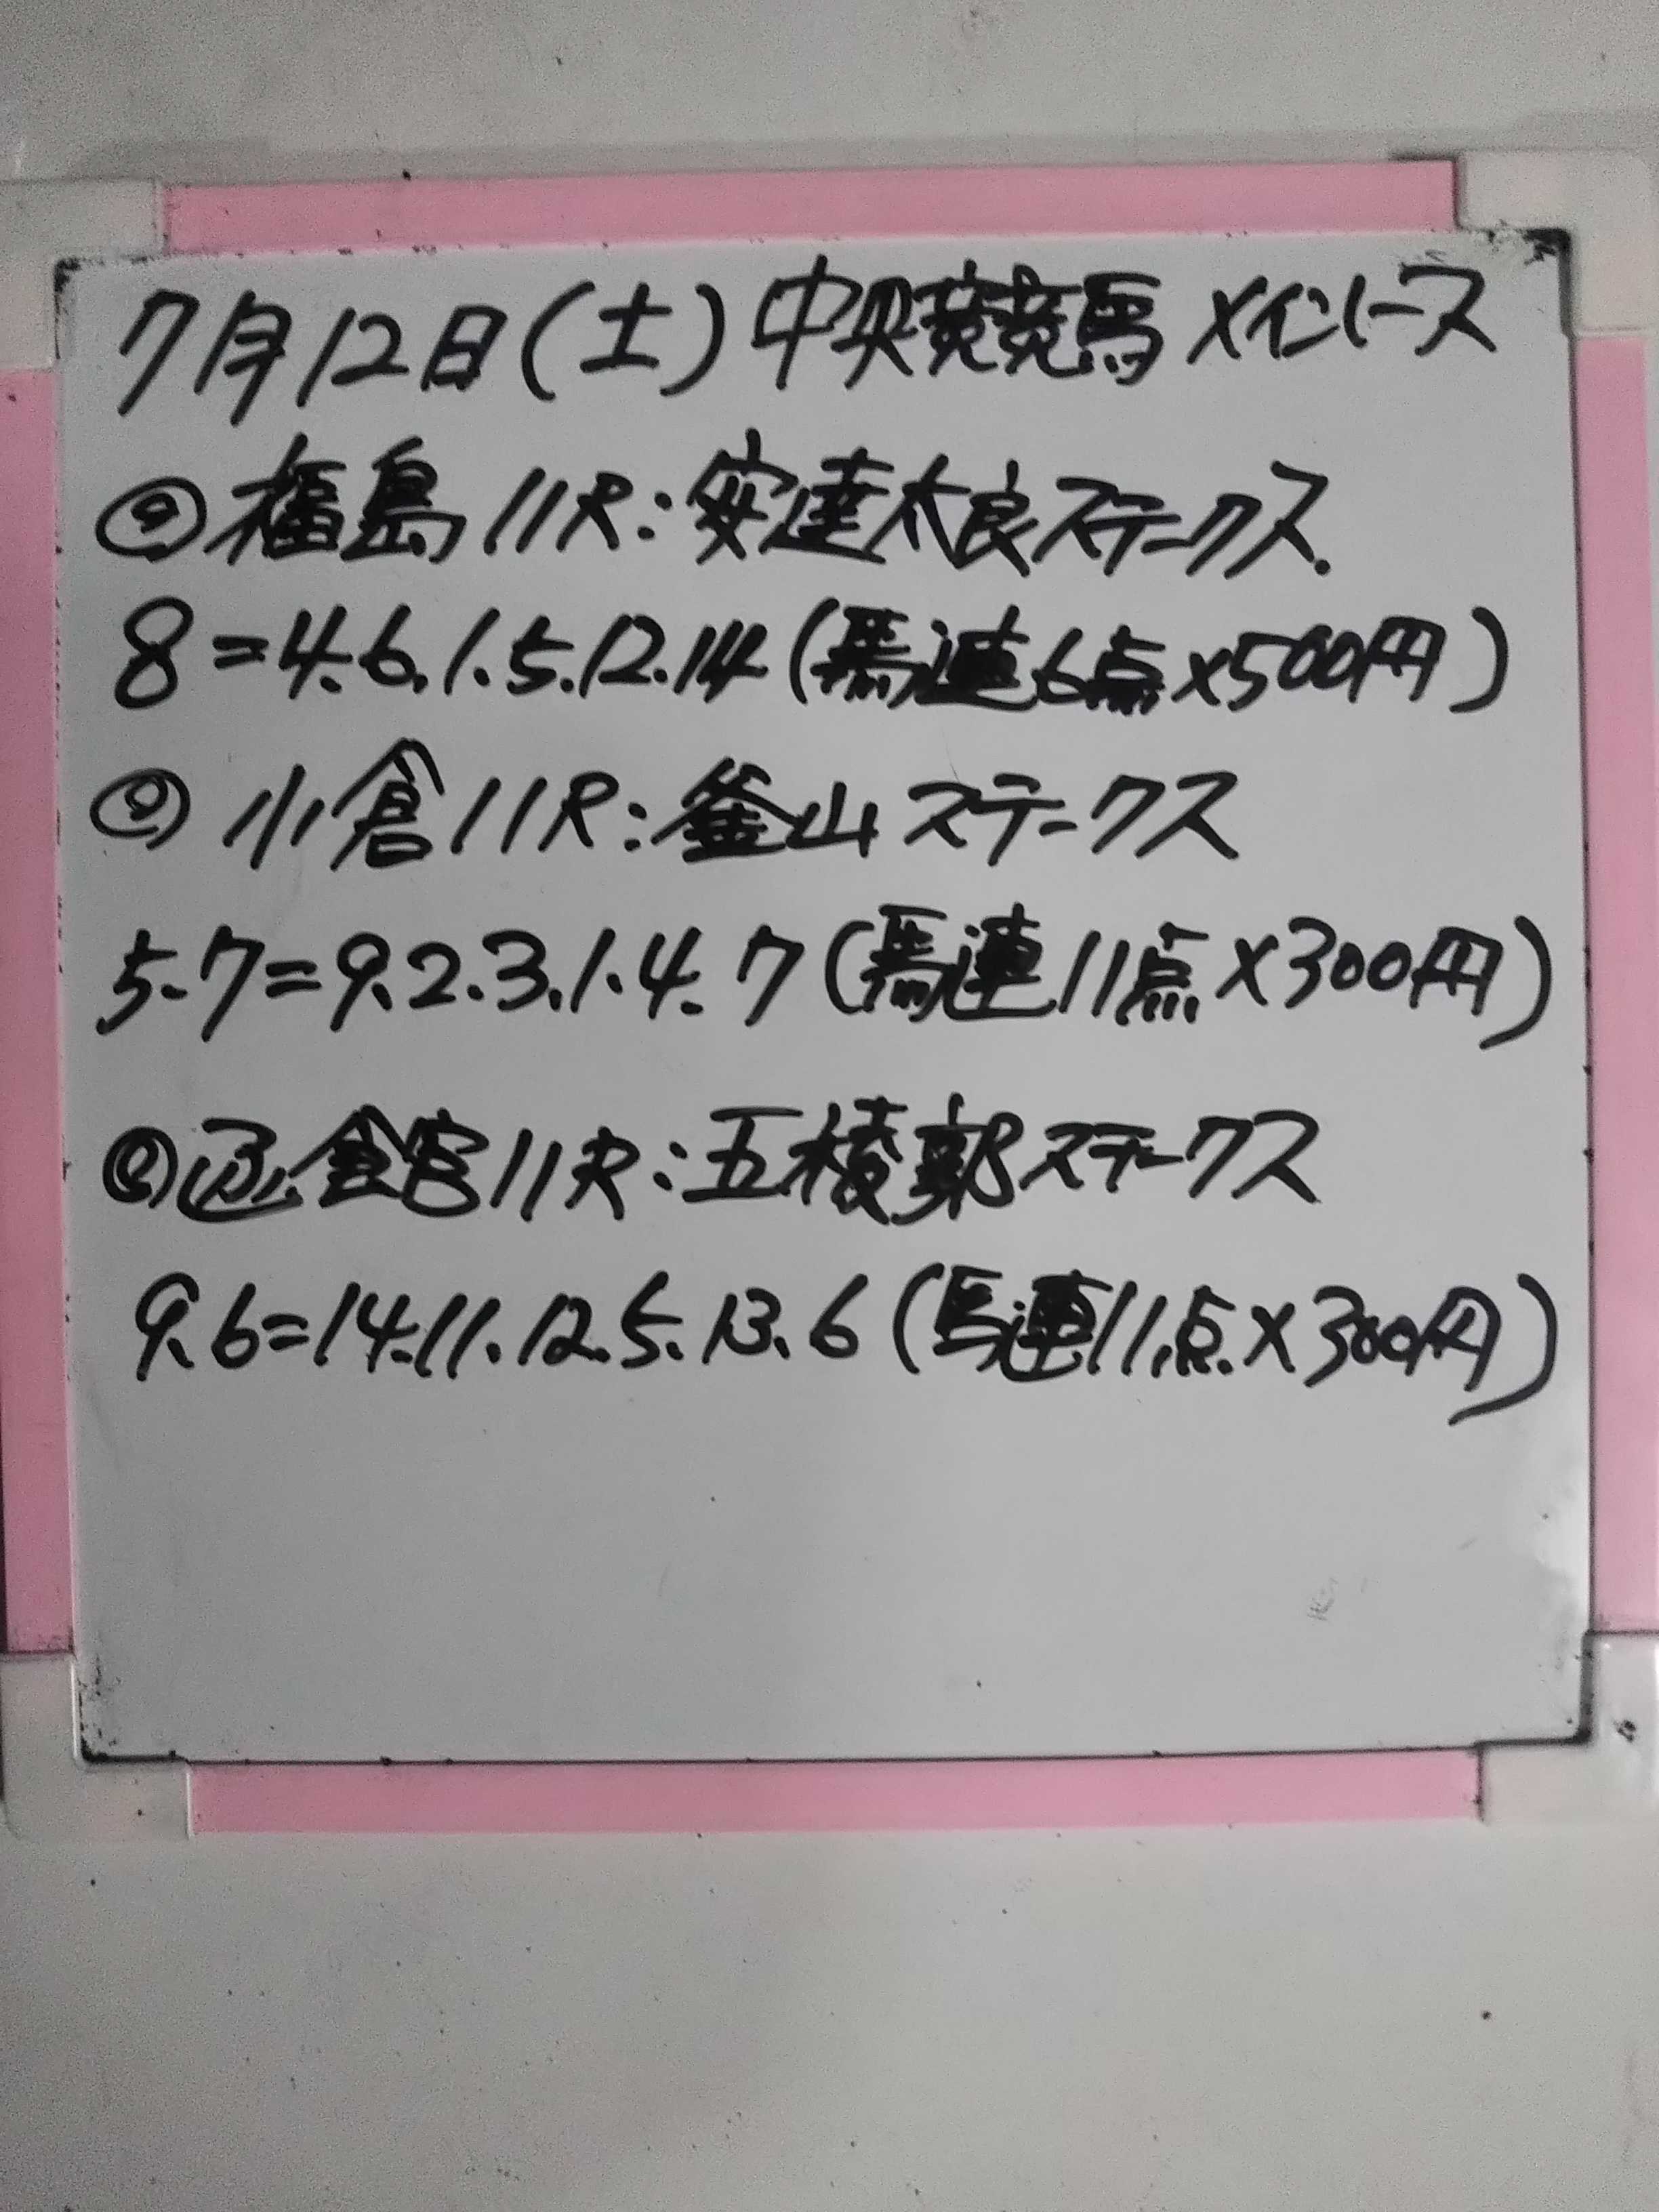 7月12日(土)中央競馬メインレース
◎福島11R:安達太良ステークス.
8=4.6.1.5.12.14(馬連6点×500円)
◎小倉11R:釜山ステークス
5.7=9.2.3.1.4.7(馬連11点×300円)
◎函館11R:五稜郭ステークス
9.6=14.11.12.5.13.6(馬連11点×300円)